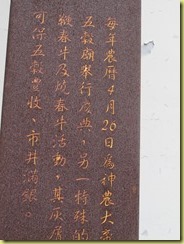 每年農曆4月26日為神農大帝
五穀廟舉行慶典，另一特殊的
春牛及燒春牛活動，其灰屑
可保五穀豐收、市井滿銀。